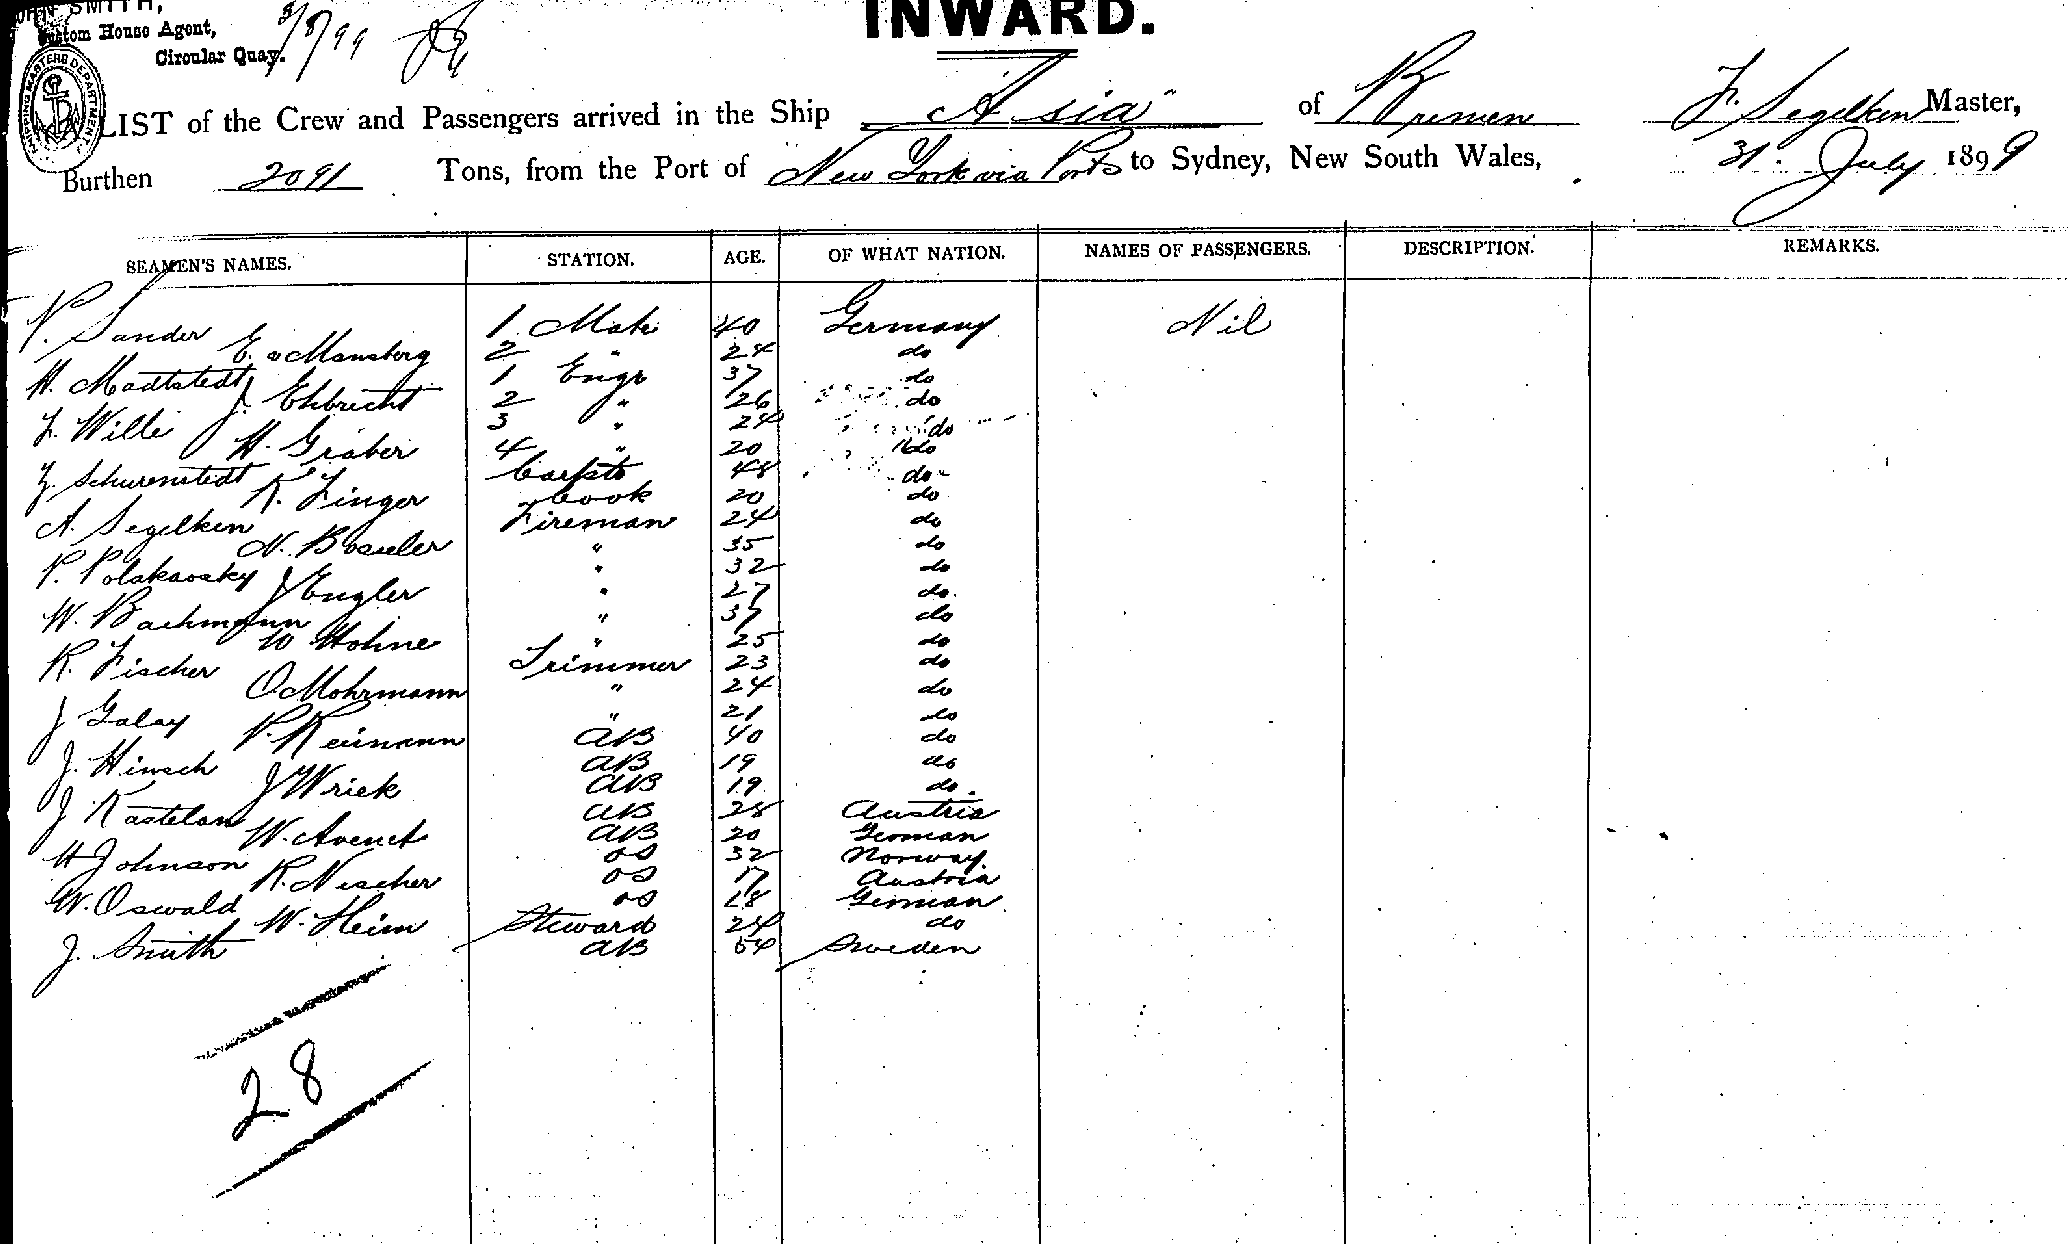 JOHN SMITH,
Custom House Agent,
Circular Quay.
INWARD.
LIST of the Crew and Passengers arrived in the Ship "Asia" of Bremen F. Segelken Master,
Burthen 2091 Tons, from the Port of New York via Ports to Sydney, New South Wales, 31. July 1899
SEAMEN'S NAMES. STATION. AGE. OF WHAT NATION. NAMES OF PASSENGERS. DESCRIPTION. REMARKS.
P. Sander 1. Mate 40 Germany Nil
E. v Mansberg 2 " 24 do
H. Madtstedt 1 Engr 37 do
J. Ehbrecht 2 " 26 do
F. Wille 3 " 24 do
H. Gräber 4 " 20 do
F. Schurenstedt Carpt 48 do
K. Finger Cook 20 do
A. Segelken Fireman 24 do
N. Bossuler " 35 do
P. Polakowsky " 32 do
J Engler " 27 do
W. Bachmann " 37 do
W Hohne " 25 do
R. Fischer Trimmer 23 do
O Mohrmann " 24 do
J Galay " 21 do
P. Reimann AB 40 do
J. Hinsch AB 19 do
J Wrick AB 19 do.
J Kastelan AB 28 Austria
W. Avenet AB 20 German
H Johnson OS 32 Norway.
R. Nischer OS 17 Austria
W. Oswald OS 18 German
W. Heim Steward 24 do
J. Smith AB 54 Sweden
28